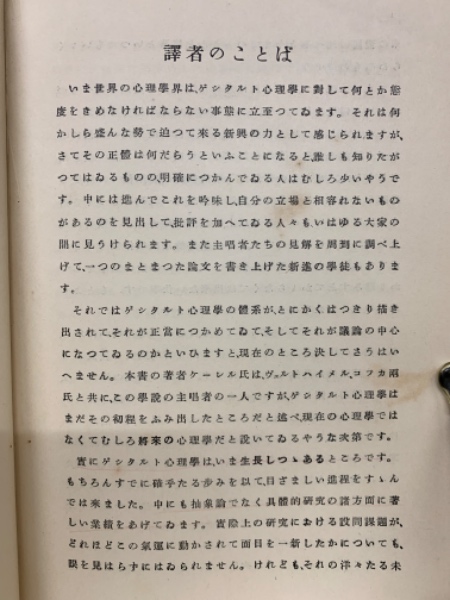 譯者のことば
いま世界の心理學界は、ゲシタルト心理學に對して何とか態
度をきめなければならない事態に立至つてゐます。それは何
かしら盛んな勢で迫つて來る新興の力として感じられますが、
さてその正體は何だらうといふことになると、誰しも知りたが
つてはゐるものの、明確につかんでゐる人はむしろ少いやうで
す。中には進んでこれを吟味し、自分の立場と相容れないもの
があるのを見出して、批評を加へてゐる人々も、いはゆる大家の
間に見うけられます。また主唱者たちの見解を周到に調べ上
げて、一つのまとまつた論文を書き上げた新進の學徒もありま
す。
それではゲシタルト心理學の體系が、とにかくはつきり描き
出されて、それが正當につかめてゐて、そしてそれが議論の中心
になつてゐるのかといひますと、現在のところ決してさうはい
へません。本書の著者ケーレル氏は、ヴェルトハイメル、コフカ兩
氏と共に、この學說の主唱者の一人ですが、ゲシタルト心理學は
まだその初程をふみ出したところだと述べ、現在の心理學では
なくてむしろ將來の心理學だと說いてゐるやうな次第です。
實にゲシタルト心理學は、いま生長しつゝあるところです。
もちろんすでに確乎たる步みを以て、目ざましい進程をすゝん
では來ました。中にも抽象論でなく具體的硏究の諸方面に著
しい業績をあげてゐます。實際上の硏究における設問課題が、
どれほどこの氣運に動かされて面目を一新したかについても、
眼を見はらずにはゐられません。けれども、それの洋々たる未